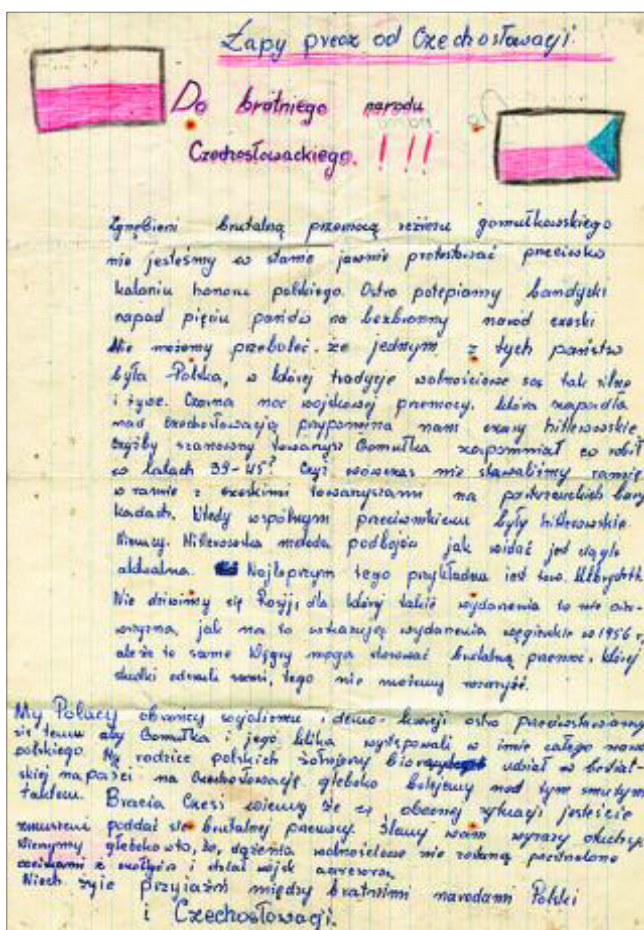 Łapy precz od Czechosłowacji
Do brátniego narodu
Czechosłowackiego. !!!
Zgnębieni brutalną przemocą reżimu gomułkowskiego
nie jesteśmy w stanie jawnie protestować przeciwko
kalaniu honoru polskiego. Ostro potępiamy bandycki
napad pięciu państw na bezbronny naród czeski
Nie możemy przeboleć, że jednym z tych państw
była Polska, w której tradycje wolnościowe są tak silne
i żywe. Czarna noc wojskowej przemocy, która zapadła
nad Czechosłowacją przypomina nam czasy hitlerowskie
czyżby szanowny towarzysz Gomułka zapomniał co robił
w latach 39-45? Czyż wówczas nie stawaliśmy ramię
w ramię z czeskimi towarzyszami na
kadach. Wtedy wspólnym przeciwnikiem były hitlerowskie
Niemcy. Hitlerowska metoda podbojów jak widać jest ciągle
aktualna. Najlepszym tego przykładem jest tow.
Nie dziwimy się Rosji, dla której takie wydarzenia to nie
jak na to wskazują wydarzenia węgierskie w 1956 r,
ale że te same Węgry mogą stosować brutalną przemoc, której
skutki odczuli sami, tego nie możemy
My Polacy obrońcy socjalizmu i demokracji ostro przeciwstawiamy
się temu aby Gomułka i jego klika występowali w imię całego narodu
polskiego. My rodzice polskich żołnierzy udział w
skiej napaści na Czechosłowację głęboko bolejemy nad tym smutnym
faktem. Bracia Czesi wiemy że w obecnej sytuacji jesteście
zmuszeni poddać się brutalnej przemocy. Ślemy wam wyrazy otuchy.
Wierzymy głęboko w to, że dążenia wolnościowe nie zostaną
czołgów i dział wojsk agresora.
Niech żyje przyjaźń między bratnimi narodami Polski
i Czechosłowacji.